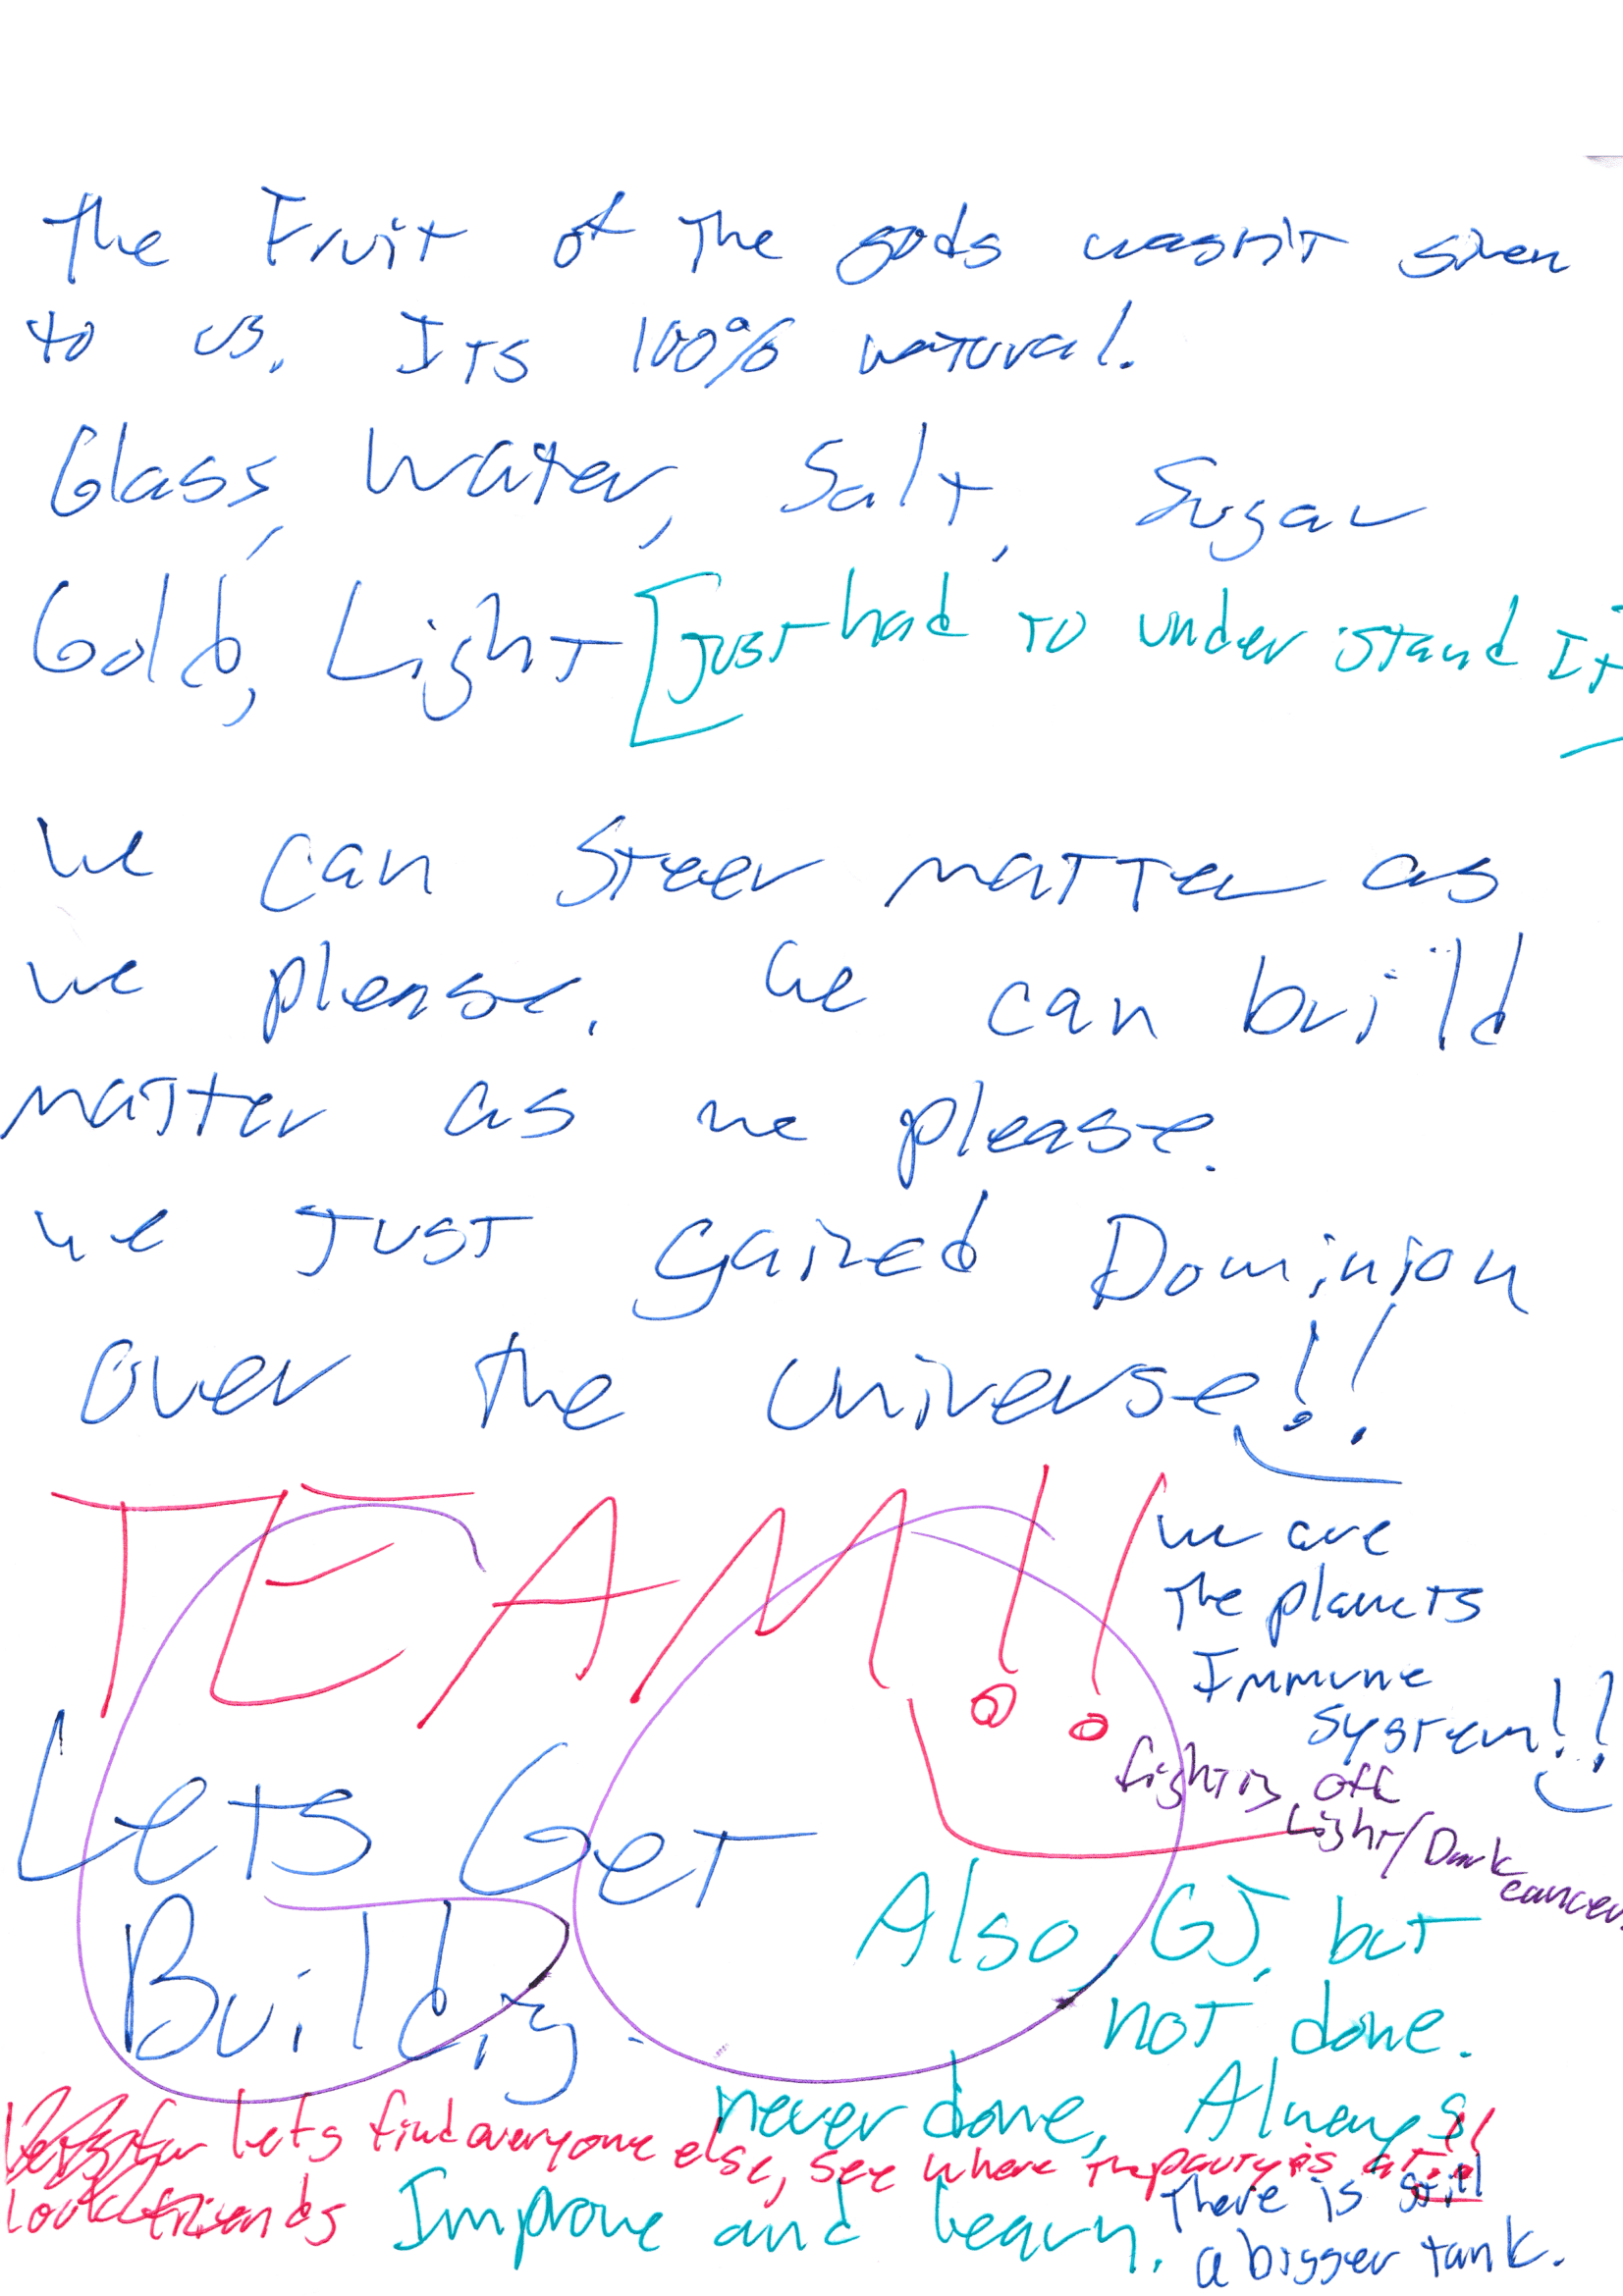 The Fruit of The gods wasn't given
to us. Its 100% natural.
Glass, Water, Salt, Sugar
Gold, Light [Just had to under stand It
We can Steer matter as
we please. We can build
matter as we please.
we Just Gained Dominion
over the universe!!
TEAM!!
we are
The planets
Immune
system!!
fighting off
Light/Dark
cancer.
Lets Get
Building.
Also GJ, but
not done.
never done, Always
lets find everyone else, see where the party is at!!
look friends
Improve and learn.
There is still
a bigger tank.